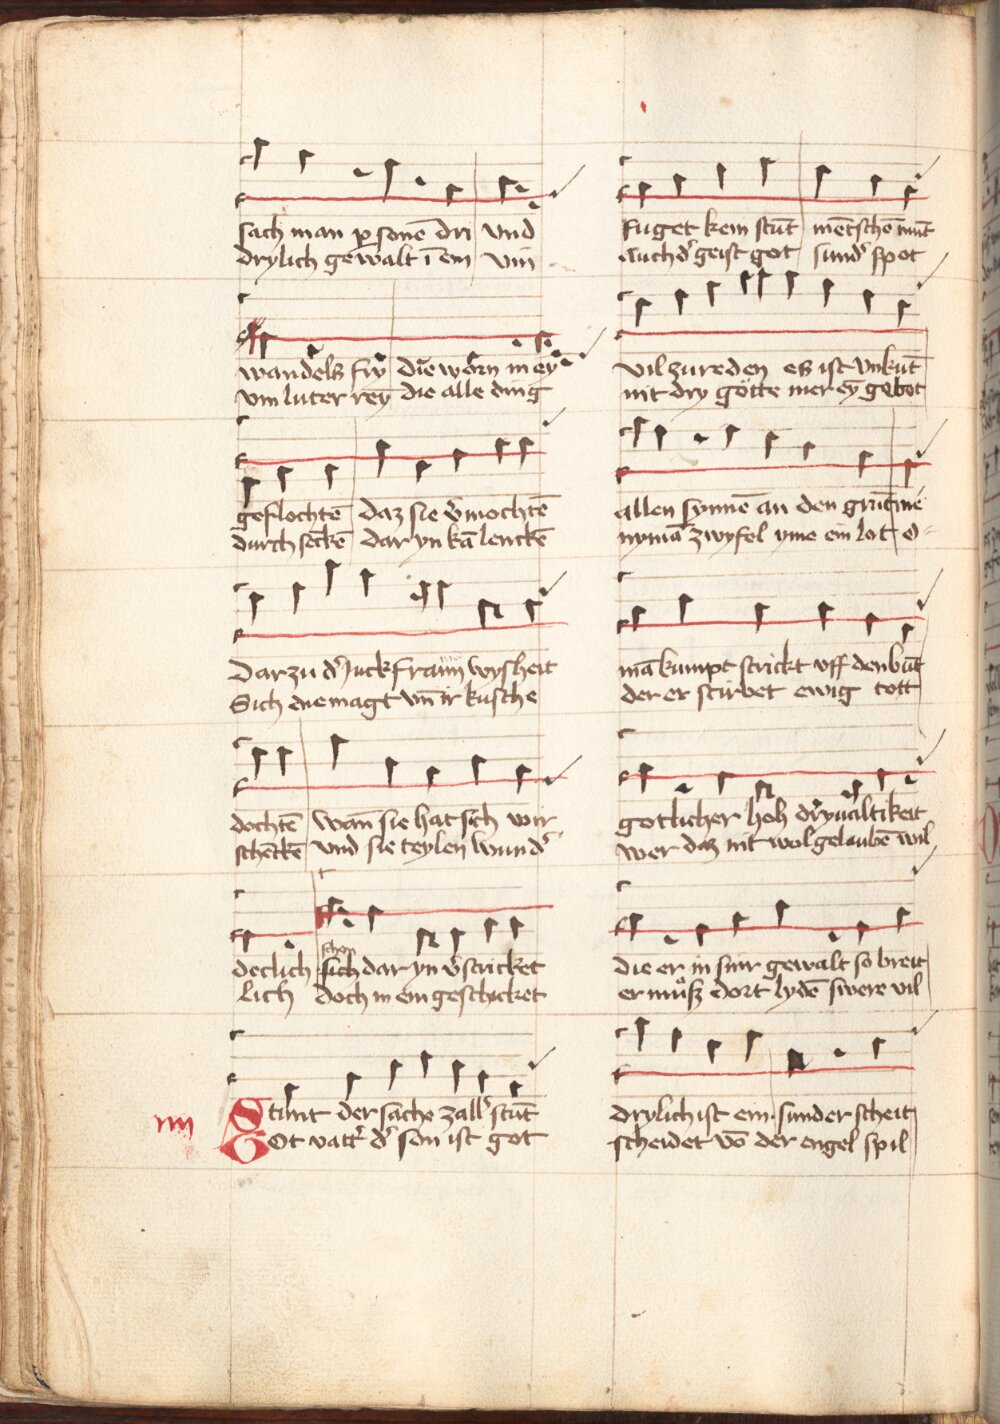 sach man p sone dri vnd
drylich gewalt ī em vm
wandels fry die worn in ey
vm luter rey die alle ding
geflochtē daz sie v̄mochtē
durch sēckē dar yn kā lenckē
Dar zu dʾ Juckfrann wysheit
Sich die magt vn̄ ir kusche
dochtē wan sie hat sich vōr
schēckē vnd sie teylen wundʾ
schon
declich sich dar yn v̄stricket
lich doch in ein geschicket
iiii Stunt der sache zallʾ stūt
Got vattʾ dʾ son ist got
fuget kein stūt mētschē mūt
Auch dʾ geist got sundʾ spot
vil zu reden es ist vnkūt
nit dry götte mer ey gebot
allen synnē an den grūt wē
nymā zwyfel yme ein lot o
mā kumpt strickt vff den būt
der er stirbet ewig tott
gotlicher hoh dryualtikeit
wer daz nit wol gelaubē wil
die er in sinr gewalt so breit
er muͦsz dort lydē swere vil
drylich ist ein sunder scheit
scheidet vō der engel spil